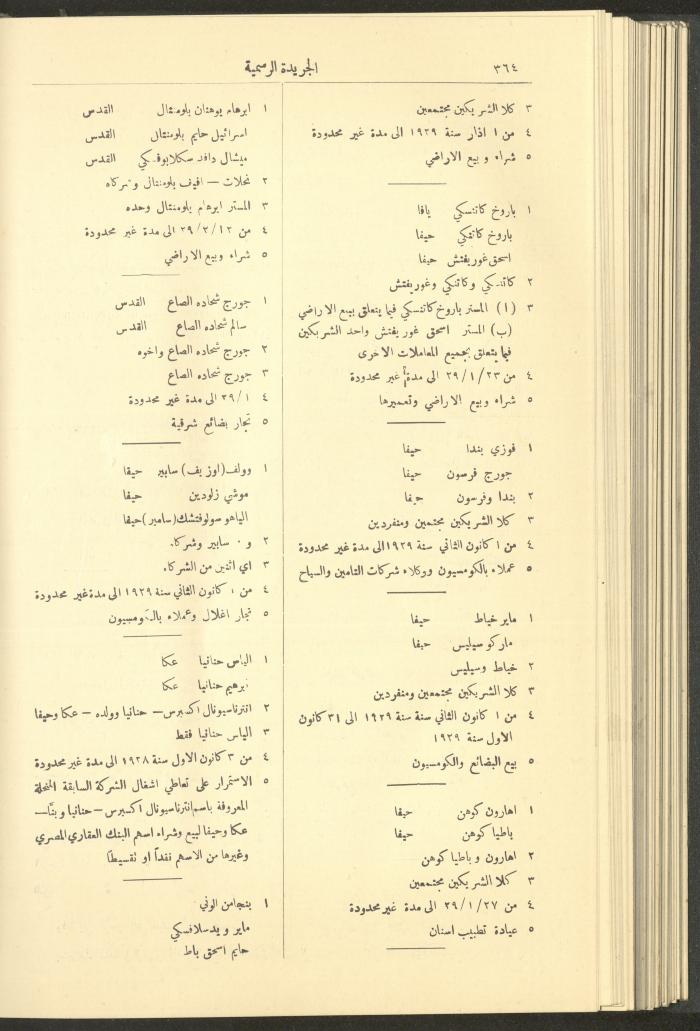 ٣٦٤
الجريدة الرسمية
٣ كلا الشريكين مجتمعين
٤ من ١ اذار سنة ١٩٢٩ الى مدة غير محدودة
٥ شراء وبيع الاراضي
١ باروخ كاتنسكي يافا
باروخ كاتنكي حيفا
اسحق غوريفتش حيفا
٢ كاتنسكي وكاتنكي وغوريفتش
٣ (ا) المستر باروخ كاتنسكي فيما يتعلق ببيع الاراضي
(ب) المستر اسحق غوريفتش واحد الشريكين
فيما يتعلق بجميع المعاملات الاخرى
٤ من ٢٩/١/٢٣ الى مدة غير محدودة
٥ شراء وبيع الاراضي وتعميرها
١ فوزي بندا حيفا
جورج فرسون حيفا
٢ بندا وفرسون حيفا
٣ كلا الشريكين مجتمعين ومنفردين
٤ من ١ كانون الثاني سنة ١٩٢٩ الى مدة غير محدودة
٥ عملاء بالكومسيون ووكلاء شركات التامين والسياح
١ ماير خياط حيفا
ماركو سيليس حيفا
٢ خياط وسيليس
٣ كلا الشريكين مجتمعين ومنفردين
٤ من ١ كانون الثاني سنة سنة ١٩٢٩ الى ٣١ كانون
الاول سنة ١٩٢٩
٥ بيع البضائع والكومسيون
١ اهارون كوهن حيفا
باطيا كوهن حيفا
٢ اهارون و باطيا كوهن
٣ كلا الشريكين مجتمعين
٤ من ٢٩/١/٢٧ الى مدة غير محدودة
٥ عيادة تطبيب اسنان
١ ابرهام يوهنان بلومنتال القدس
اسرائيل حايم بلومنتال القدس
ميشال دافد سكلابوفسكي القدس
٢ نحلات — افيف بلومنتال وشركاه
٣ المستر ابرهام بلومنتال وحده
٤ من ٢٩/٢/١٢ الى مدة غير محدودة
٥ شراء وبيع الاراضي
١ جورج شحاده الصاع القدس
سالم شحاده الصاع القدس
٢ جورج شحاده الصاع واخوه
٣ جورج شحاده الصاع
٤ ٢٩/١ الى مدة غير محدودة
٥ تجار بضائع شرقية
١ وولف (اوزيف) سابير حيفا
موشي زلودين حيفا
الياهو سولوفتشك (سامبر) حيفا
٢ و. سابير وشركاه
٣ اي اثنين من الشركاء
٤ من ١ كانون الثاني سنة ١٩٢٩ الى مدة غير محدودة
٥ تجار اغلال وعملاء بالكومسيون
١ الياس حنانيا عكا
ابرهيم حنانيا عكا
٢ انترناسيونال اكسبرس — حنانيا وولده — عكا وحيفا
٣ الياس حنانيا فقط
٤ من ٣ كانون الاول سنة ١٩٢٨ الى مدة غير محدودة
٥ الاستمرار على تعاطي اشغال الشركة السابقة المنحلة
المعروفة باسم انترناسيونال اكسبرس — حنانيا و
عكا وحيفا لبيع وشراء اسهم البنك العقاري المصري
وغيرها من الاسهم نقداً او تقسيطا
١ بنجامن الوني
ماير ويدسلافسكي
حايم اسحق باط